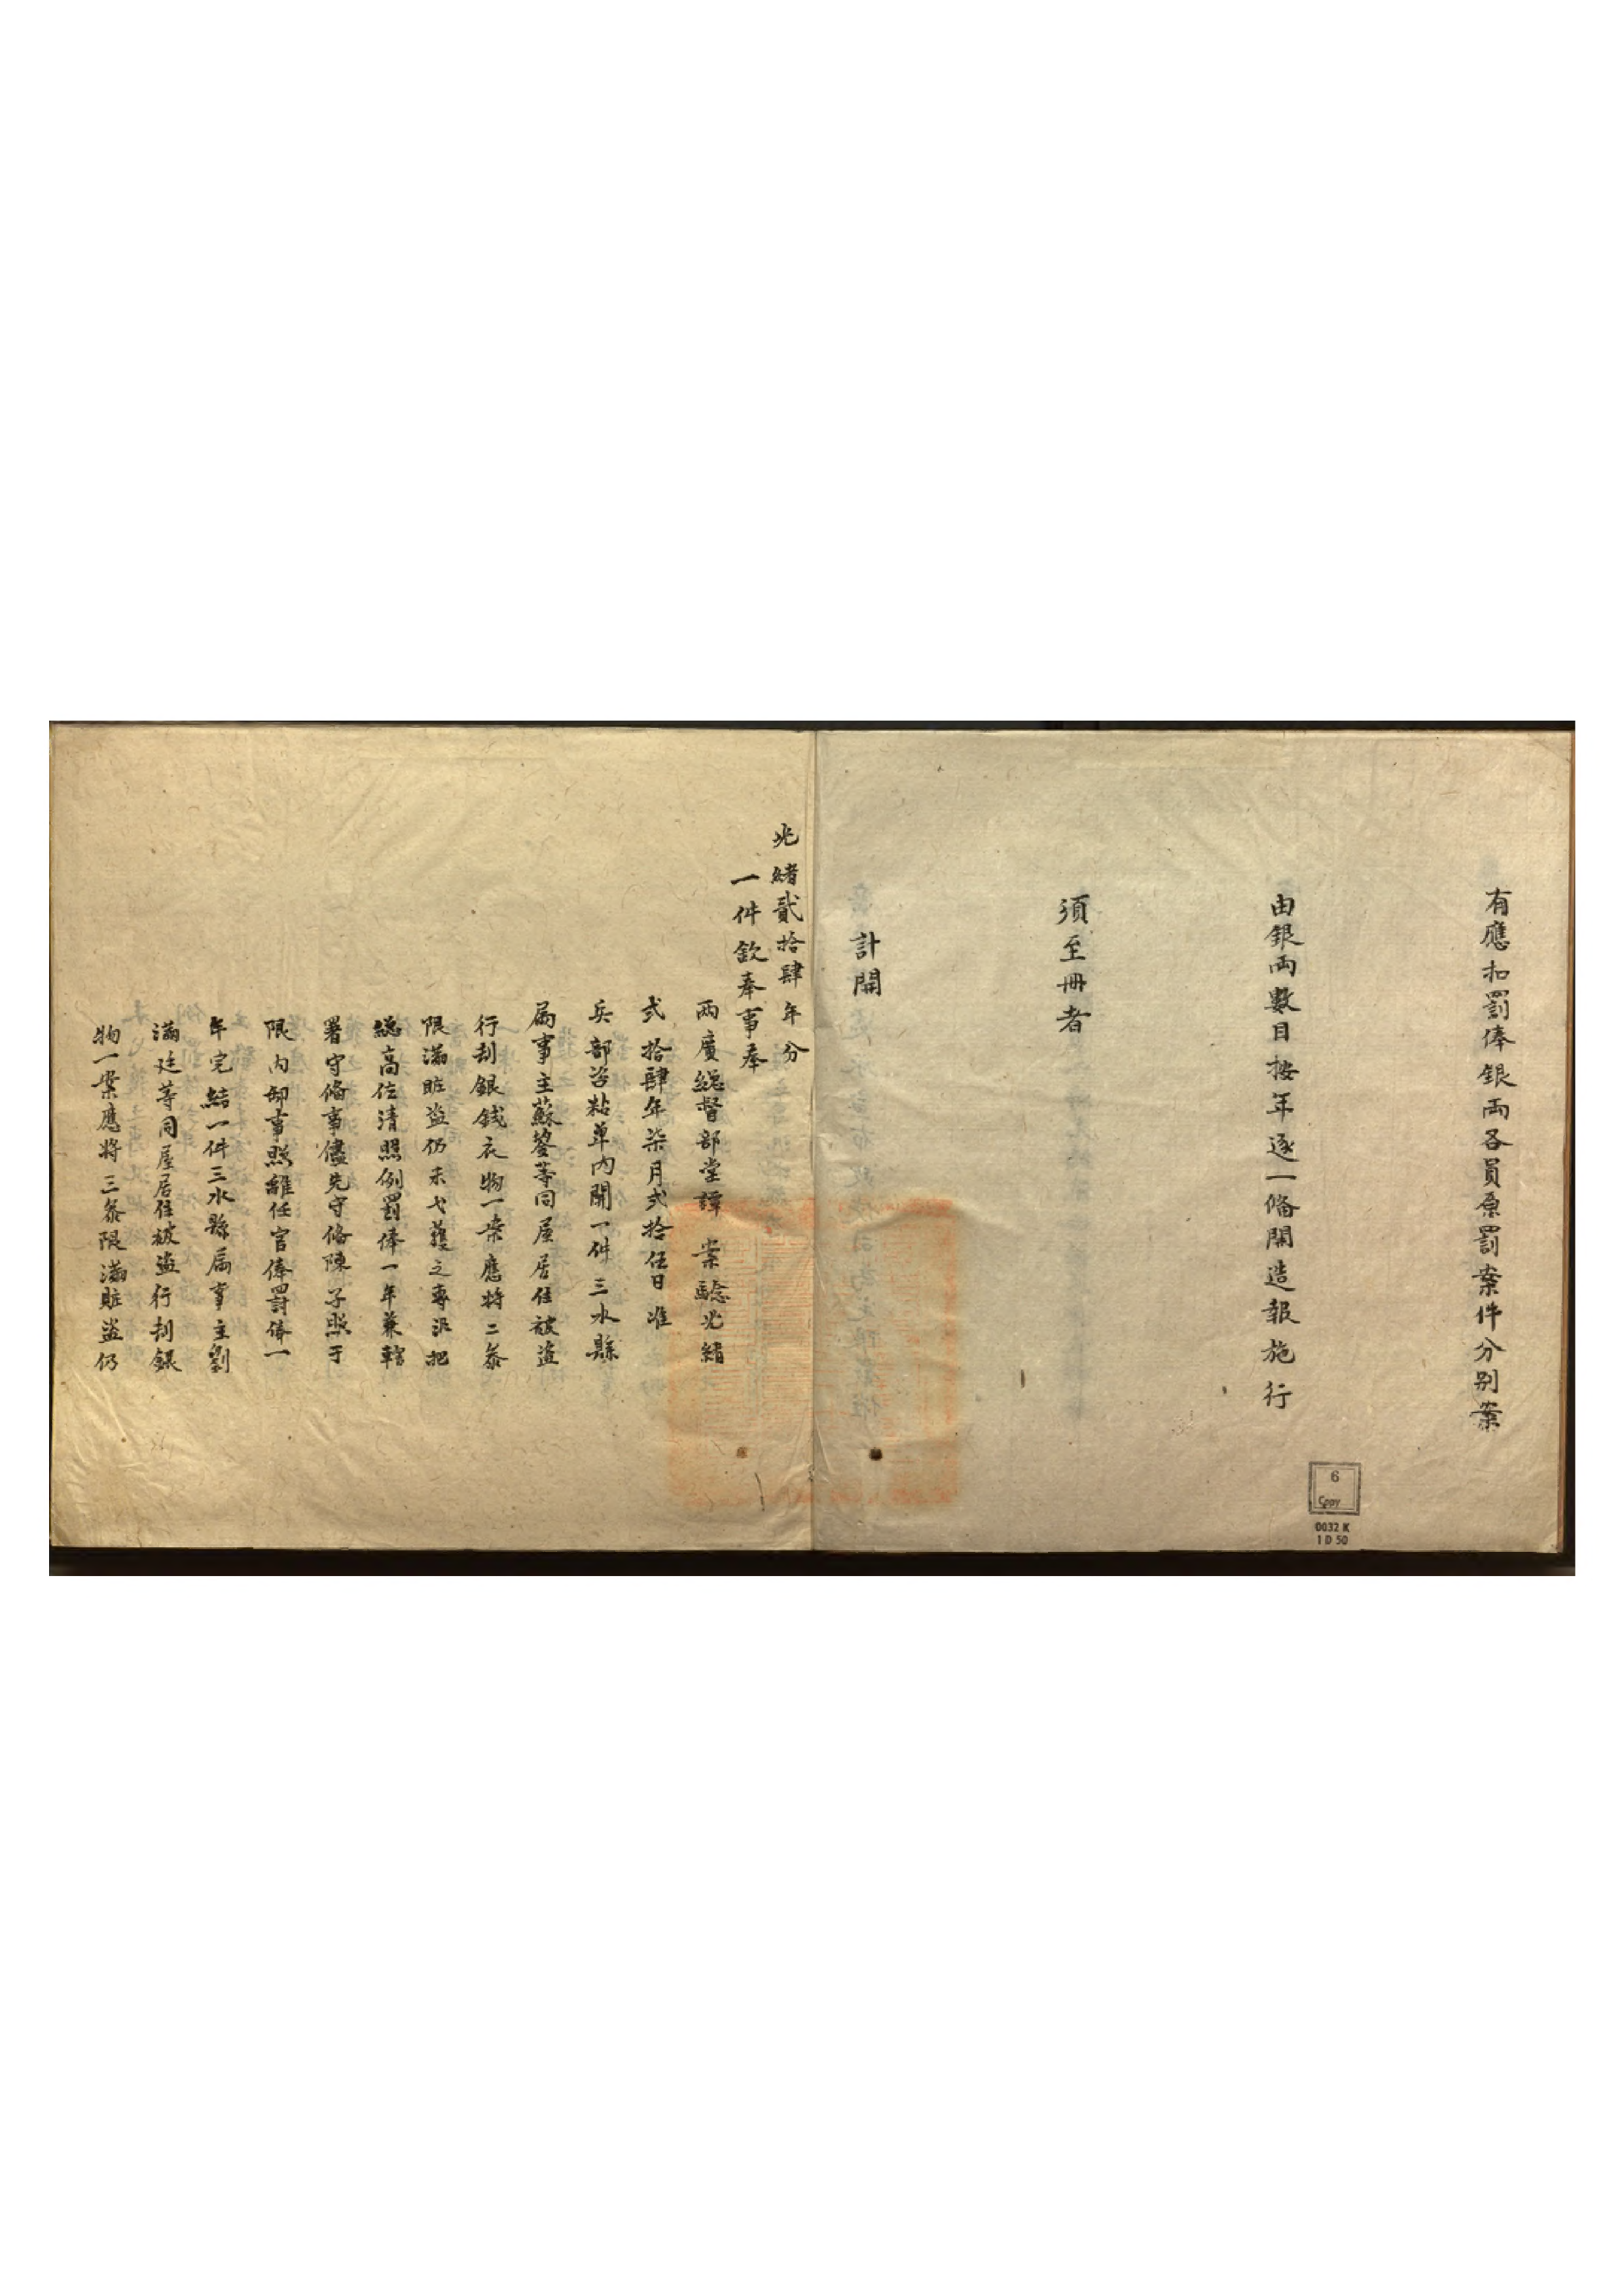 有應扣罰俸銀兩各員原罰案件分别案
由銀兩數目按年逐一條開造報施行
須至冊者
計開
光緒貳拾肆年分
一件欽奉事奉
兩廣總督部堂譚 案驗光緒
弍拾肆年柒月弍拾伍日准
兵部咨粘單內開一件三水縣
属事主蘇  等同屋居住被盗
行刦銀錢衣物一案應將二叅
限滿賍盗仍未弋獲之專汛把
總高佐清照例罰俸一年兼轄
署守俻事儘先守俻陳子照于
限內卸事照離任官俸罰俸一
年完結一件三水縣属事主劉
滿廷等同屋居住被盗行刦銀
物一案應將三叅限滿賍盗仍
6
Copy
0032 K
1 D 50